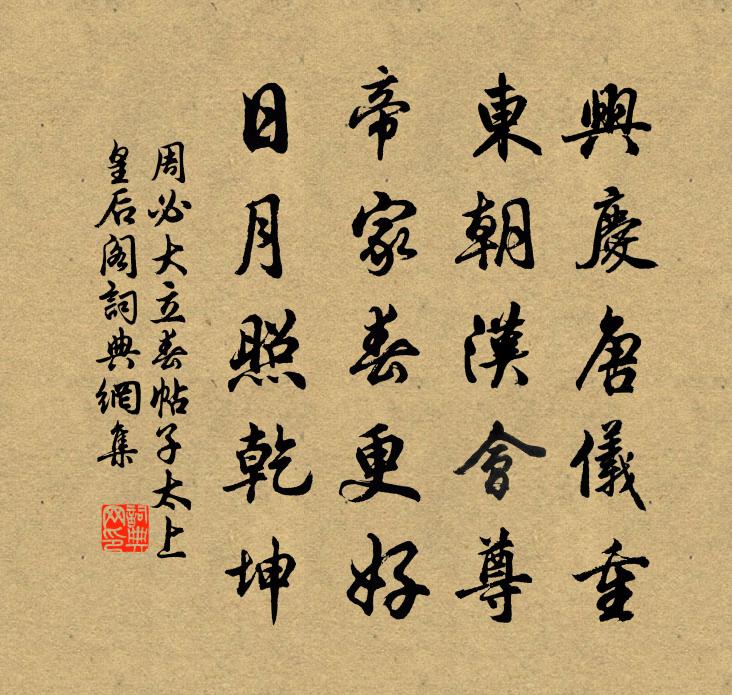 興慶唐儀重
東朝漢會尊
帝家春更好
日月照乾坤
周必大立春帖子太上
皇后閣詞典網集
詞典
网印